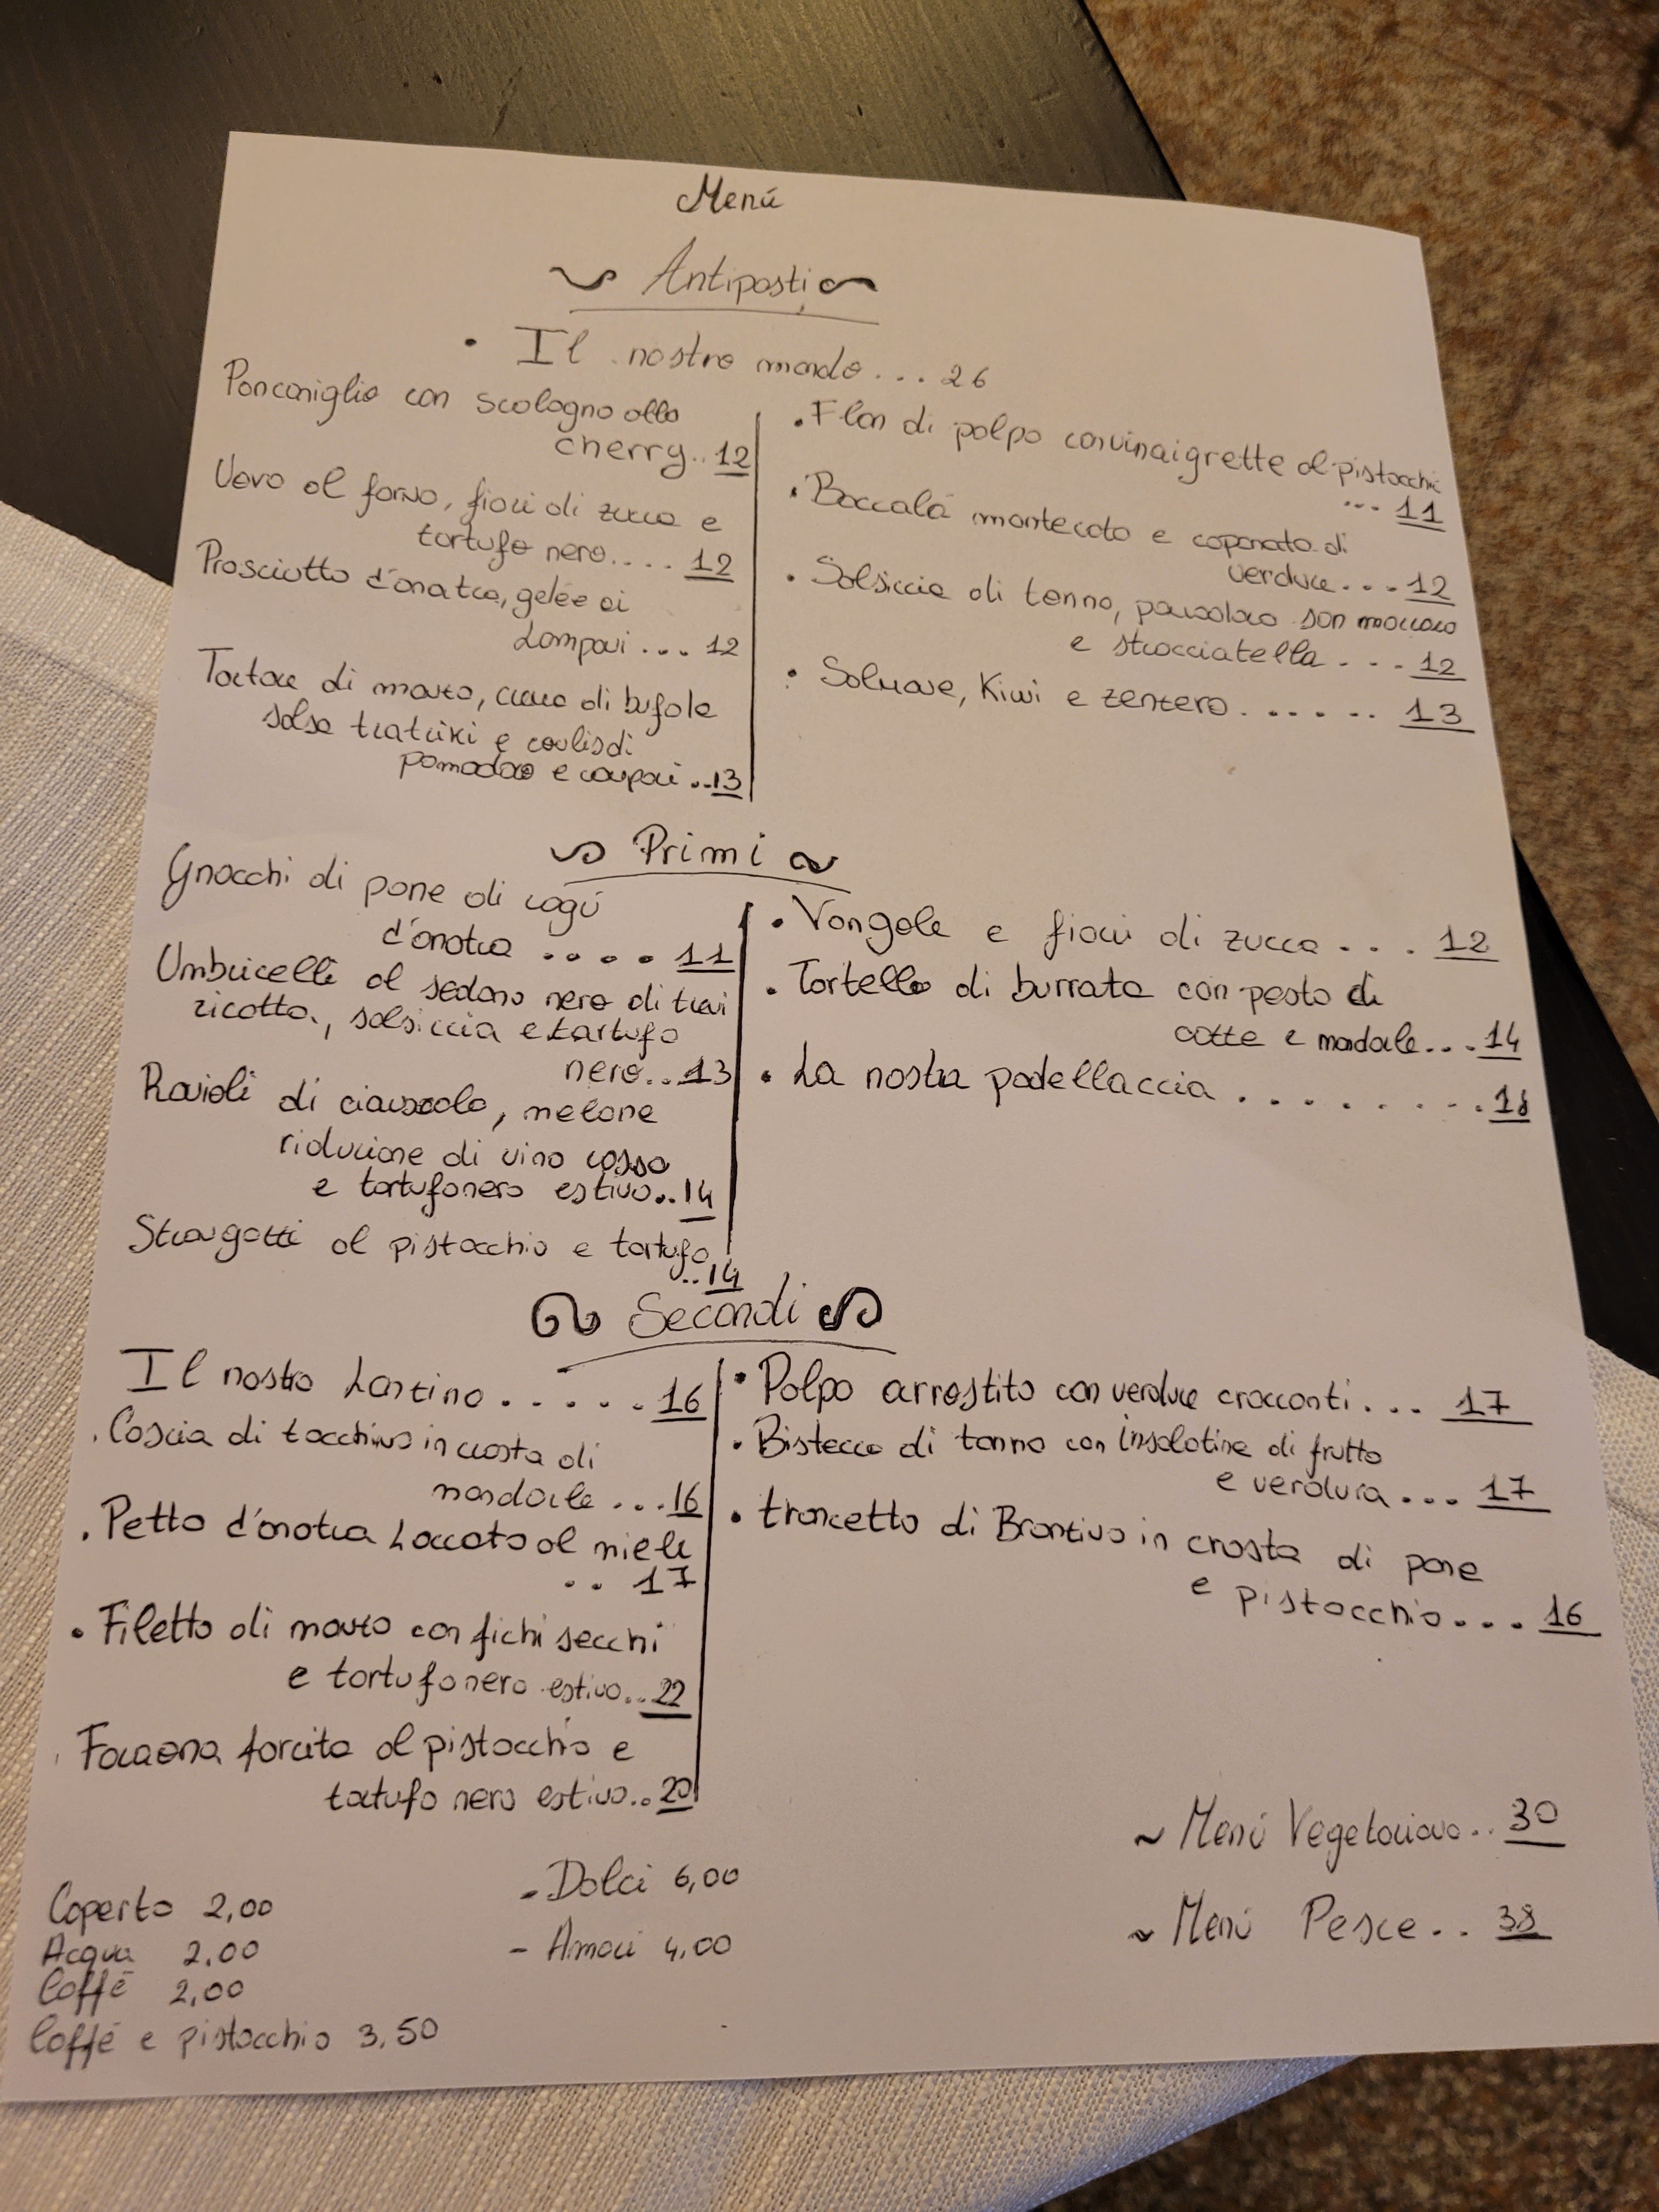 Menú
Antipasti
• Il nostro mondo... 26
Porconiglio con scalogno allo
cherry.. 12
Uovo al forno, fiori di zucca e
tartufo nero.... 12
Prosciutto d'anatra, gelée ai
Lampari ... 12
Tartare di manzo, crema di bufala
salsa tratziki e coulis di
pomodoro e capperi ..13
• Flan di polpo con vinaigrette al pistacchio
... 11
• Baccalá mantecato e caponata di
verdure... 12
• Salsiccia di tonno, pomodoro san marzano
e stracciatella ... 12
• Salmone, Kiwi e zenzero...... 13
Primi
Gnocchi di pane al ragú
d'anatra .... 11
Umbricelli al sedano nero di trevi
ricotta, salsiccia e tartufo
nero.. 13
Ravioli di ciauscolo, melone
riduzione di vino rosso
e tartufo nero estivo.. 14
Strangozzi al pistacchio e tartufo
.. 14
• Vongole e fiori di zucca ... 12
• Tortello di burrata con pesto di
cotte e mandorle... 14
• La nostra padellaccia ......... 18
Secondi
Il nostro Lartino ..... 16
• Coscia di tacchino in crosta di
mandorle ... 16
• Petto d'anatra Laccato al miele
.. 17
• Filetto di manzo con fichi secchi
e tartufo nero estivo.. 22
• Faraona farcita al pistacchio e
tartufo nero estivo.. 20
• Polpo arrostito con verdure croccanti... 17
• Bistecca di tonno con insalatine di frutta
e verdura ... 17
• troncetto di Branzino in crosta di pane
e pistacchio ... 16
~ Menú Vegetariano.. 30
~ Menú Pesce.. 38
- Dolci 6,00
- Amari 4,00
Coperto 2,00
Acqua 2,00
Caffé 2,00
Caffé e pistacchio 3,50